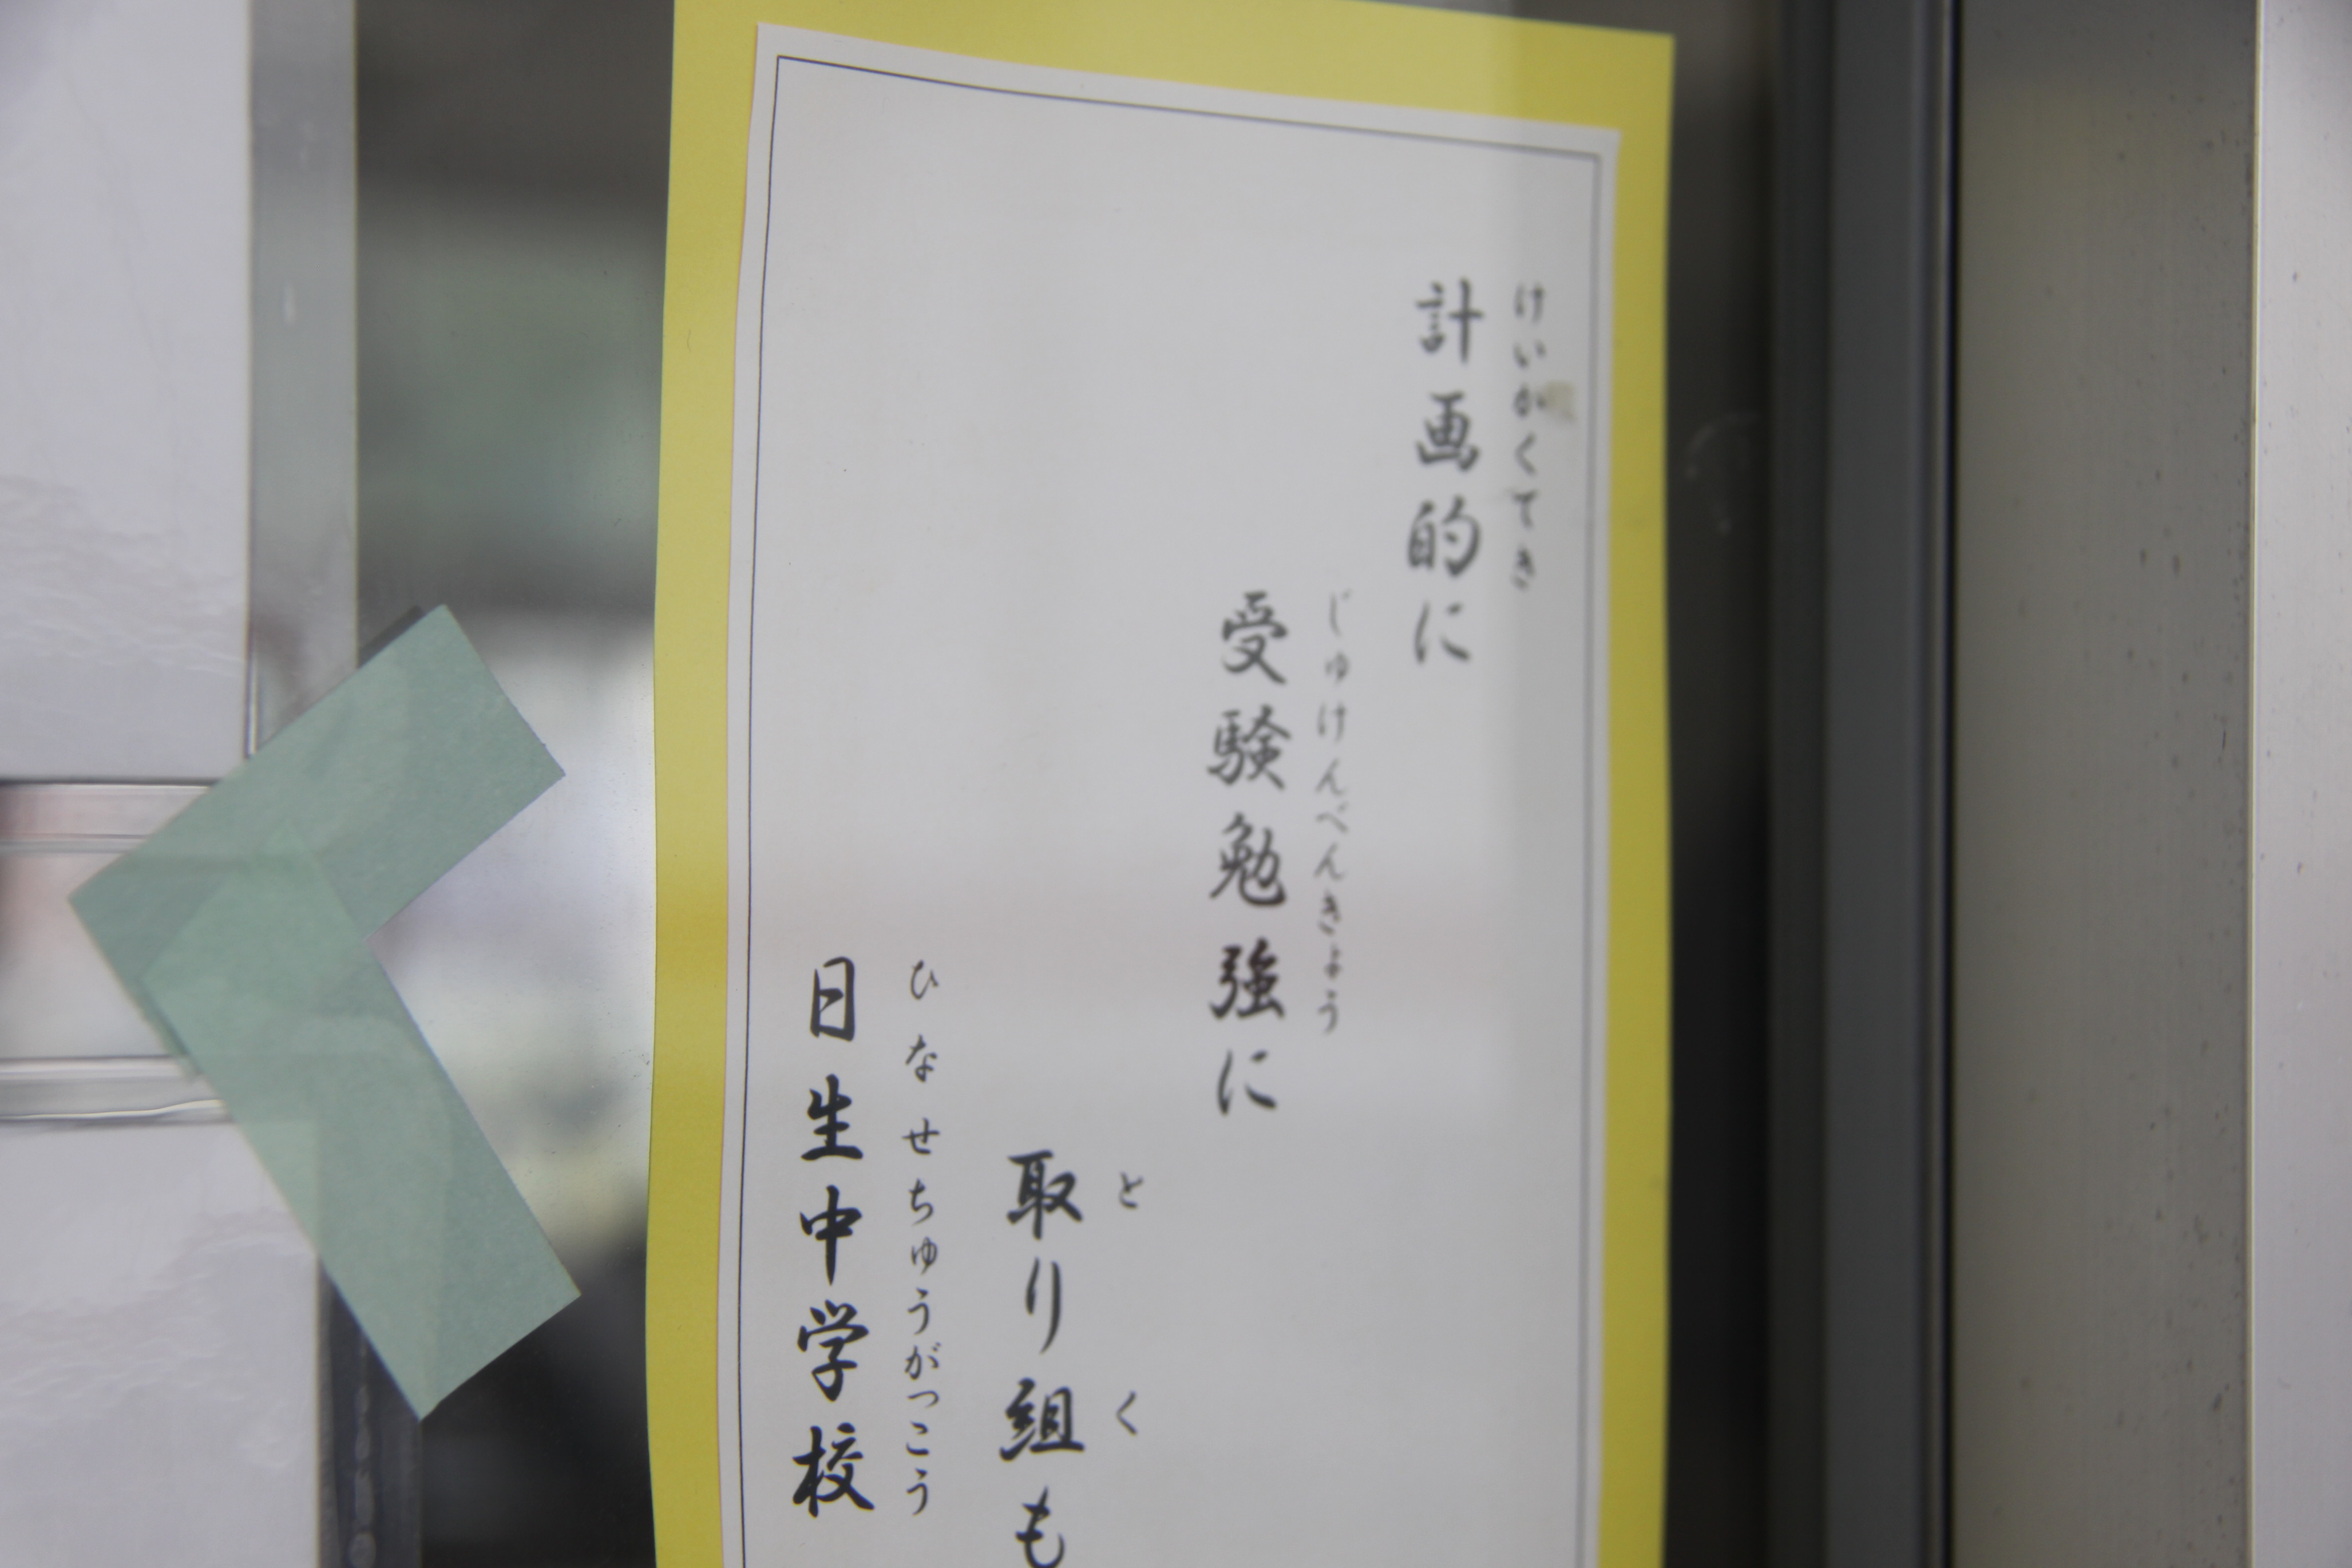 計画的に
けいかくてき
受験勉強に
じゅけんべんきょう
取り組も
と く
日生中学校
ひなせちゅうがっこう